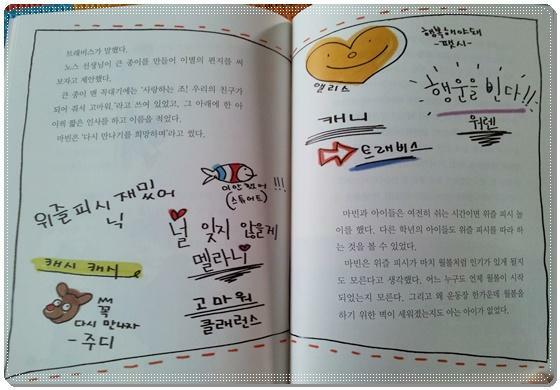 트래비스가 말했다.
노스 선생님이 큰 종이를 만들어 이별의 편지를 써
보자고 제안했다.
큰 종이 맨 꼭대기에는 '사랑하는 조! 우리의 친구가
되어 줘서 고마워.'라고 쓰여 있었고, 그 아래에 한 아
이씩 짧은 인사를 하고 이름을 적었다.
마빈은 '다시 만나기를 희망하며'라고 썼다.
위즐피시 재밌어
닉
미안했어!!!
(스튜어트)
널 잊지 않을게
멜라니
캐시 캐시
꼭
다시 만나자
-주디
고마워
클래런스
앨리스
행복해야돼
-팻시-
행운을 빈다!!
워렌
캐니
트래비스
마빈과 아이들은 여전히 쉬는 시간이면 위즐 피시 놀
이를 했다. 다른 학년의 아이들도 위즐 피시를 따라 하
는 것을 볼 수 있었다.
마빈은 위즐 피시가 마치 월볼처럼 인기가 있게 될지
도 모른다고 생각했다. 어느 누구도 언제 월볼이 시작
되었는지 모른다. 그리고 왜 운동장 한가운데 월볼을
하기 위한 벽이 세워졌는지도 아는 아이가 없었다.